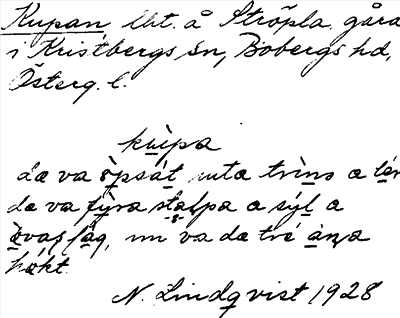 Kupan, lht. å Ströpla gård
i Kristbergs sn, Bobergs hd,
Österg. l.
kùpa
da va òpsát uta trìns a tér
da va fỳra stalpa a sýl a
ovaslág, nn va da tré àna
hǿkt.
N. Lindqvist 1928